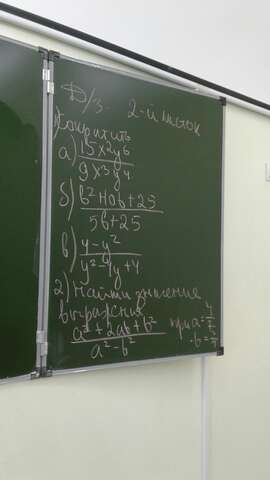 Д/з. 2-й листок
1) Сократить
а) 15x²y⁶ / 9x³y⁴
б) b²+10b+25 / 5b+25
в) y-y² / y²-4y+4
2) Найти значение
выражения
a²+2ab+b² / a²-b² при a=
b=